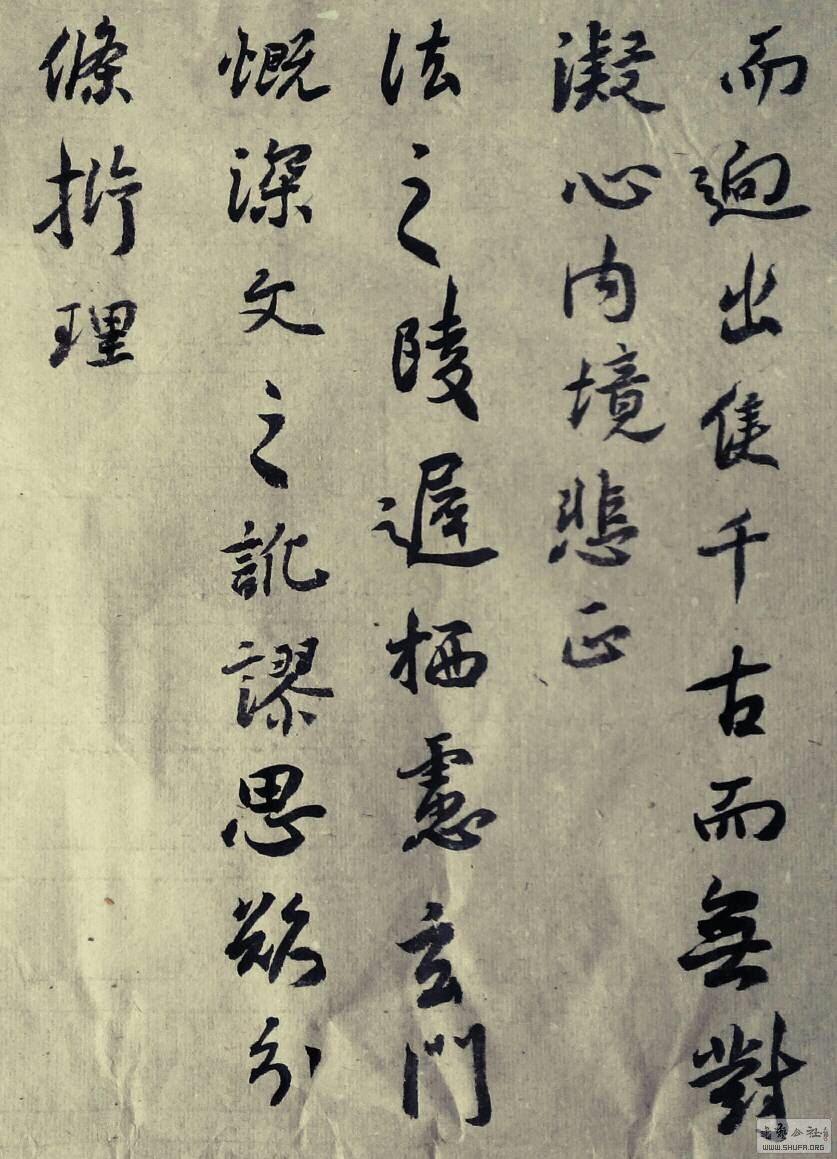 而迥出隻千古而無對
凝心内境悲正
法之陵遲栖慮玄門
慨深文之訛謬思欲分
條析理
書法公社
WWW.SHUFA.ORG